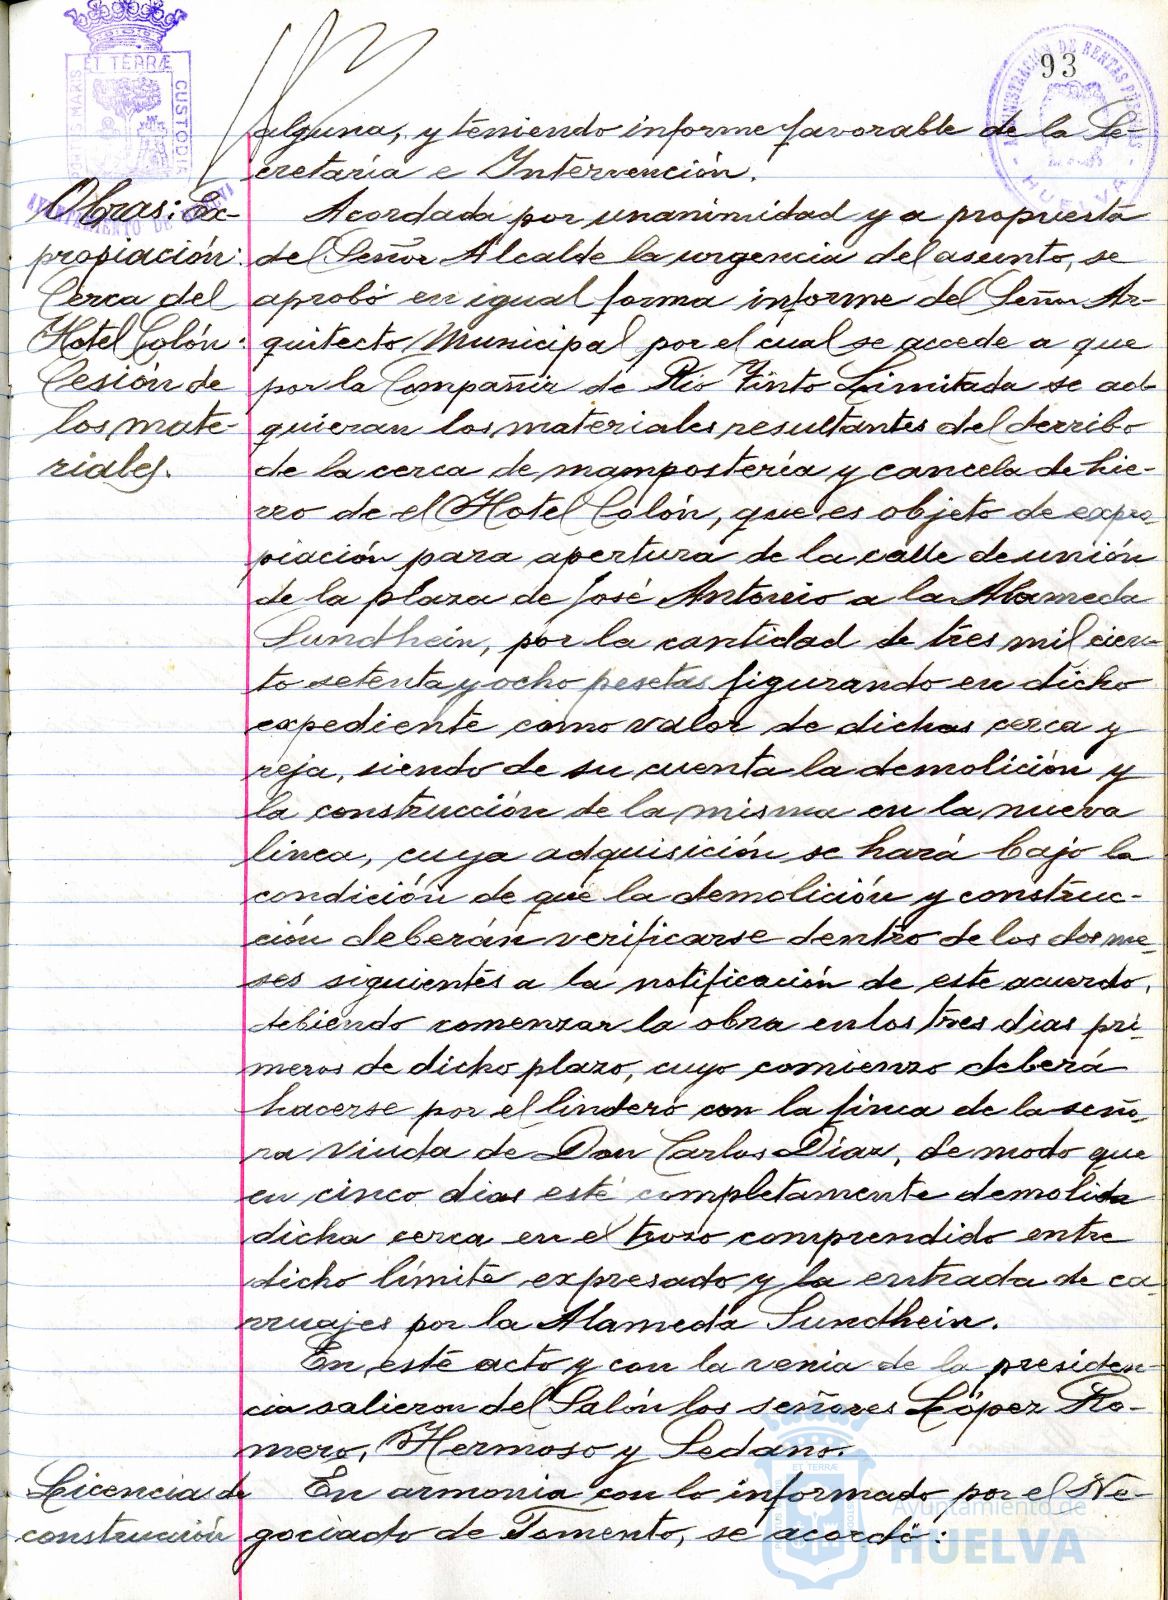 93
ET TERRÆ
S MARIS
CUSTODIA
AYUNTAMIENTO DE
ADMINISTRACIÓN DE RENTAS PÚBLICAS
HUELVA
alguna, y teniendo informe favorable de la Se-
cretaría e Intervención.
Obras: Ex-
propiación:
Cerca del
Hotel Colón:
Cesión de
los mate-
riales.
Acordada por unanimidad y a propuesta
del Señor Alcalde la urgencia del asunto, se
aprobó en igual forma informe del Señor Ar-
quitecto Municipal por el cual se accede a que
por la Compañía de Rio Tinto Limitada se ad-
quieran los materiales resultantes del derribo
de la cerca de mampostería y cancela de hie-
rro de el Hotel Colón, que es objeto de expro-
piación para apertura de la calle de unión
de la plaza de José Antonio a la Alameda
Sundhein, por la cantidad de tres mil cien-
to setenta y ocho pesetas figurando en dicho
expediente como valor de dichas cerca y
reja, siendo de su cuenta la demolición y
la construcción de la misma en la nueva
linea, cuya adquisición se hará bajo la
condición de que la demolición y construc-
ción deberán verificarse dentro de los dos me-
ses siguientes a la notificación de este acuerdo,
debiendo comenzar la obra en los tres dias pri-
meros de dicho plazo, cuyo comienzo deberá
hacerse por el lindero con la finca de la seño-
ra viuda de Don Carlos Díaz, de modo que
en cinco dias esté completamente demolida
dicha cerca en el trozo comprendido entre
dicho límite expresado y la entrada de ca-
rruajes por la Alameda Sundhein.
En este acto y con la venia de la presiden-
cia salieron del Salón los señores López Ro-
mero, Hermoso y Sedano.
Licencias de
construcción
En armonia con lo informado por el Ne-
gociado de Fomento, se acordó:
Ayuntamiento de
HUELVA